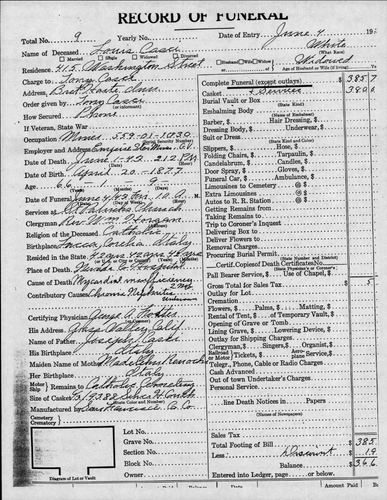 RECORD OF FUNERAL
Total No. 9 Yearly No. Date of Entry June 4 19
Name of Deceased Louis Casci White
(What Race)
Married Single Widowed Divorced Husband Wife Widow Widowed
Residence 415 Washington Street Age of Husband or Wife (if living)
Charge to Tony Casci
Address, Bret Harte Inn
Order given by Tony Casci
(or informant)
How Secured Phone
If Veteran, State War
Occupation Miner 559-01-1030
Social Security Number
Employer and Address Empire Star Mines Co.
Date of Death June 1-42 2:12 P.M.
Date of Birth April 20-1877
Age 66-1-9
Date of Funeral June 4-43 Thu 10 A.M.
Services at St Patricks Church
Clergyman Rev Wm Horgan
Religion of the Deceased Catholic
Birthplace Italy
Resided in the State 42 yrs 42 yrs 42 yrs
Place of Death Nevada Co. Hospital
Cause of Death Myocardial insufficiency
Contributory Causes Chronic Nephritis
Certifying Physician George A. Foster
His Address Grass Valley Calif
Name of Father Joseph Casci
His Birthplace Italy
Maiden Name of Mother
Her Birthplace Italy
Motor Ship Remains to Catholic Cemetery
Size of Casket
(State Color and Number)
Manufactured by San Francisco C. Co.
Cemetery
Crematory
Diagram of Lot or Vault
Lot No.
Grave No.
Section No.
Block No.
Owner
Complete Funeral (except outlays) $ 385 7
Casket & Service 380 0
Burial Vault or Box
(State Kind)
Embalming Body
Barber, $ Hair Dressing, $
Dressing, $ Underwear, $
Suit or Dress
(State Kind and Color)
Slippers, $ Hose, $
Folding Chairs, $ Tarpaulin, $
Candelabrum, $ Candles, $
Door Spray, $ Gloves, $
Funeral Car, $ Ambulance, $
Limousines to Cemetery @ $
Extra Limousines @ $
Autos to R. R. Station @ $
Getting Remains from
Taking Remains to
Trip to Coroner's Inquest
Delivering Box to
Deliver Flowers to
Removal Charges
Procuring Burial Permit
(State Number and District)
Certif. Copies of Death Certificates No.
(State Physician's or Coroner's)
Pall Bearer Service, $ Use of Chapel, $
Gross Total for Sales Tax $ 5
Outlay for Lot
Cremation
Flowers, $ Palms, $ Matting, $
Rental of Tent, $ of Temporary Vault, $
Opening of Grave or Tomb
Lining Grave, $ Lowering Device, $
Outlay for Shipping Charges
Clergyman, $ Singers, $ Organist, $
Railroad Motor Tickets, $ Aeroplane Service, $
Telegr., Phone, Cable or Radio Charges
Cash Advanced
Out of town Undertaker's Charges
Personal Service
line Death Notices in Papers
Sales Tax
Total Footing of Bill $ 385
Less Discount 19
Balance $ 366
Entered into Ledger, page or below.
Amount Paid